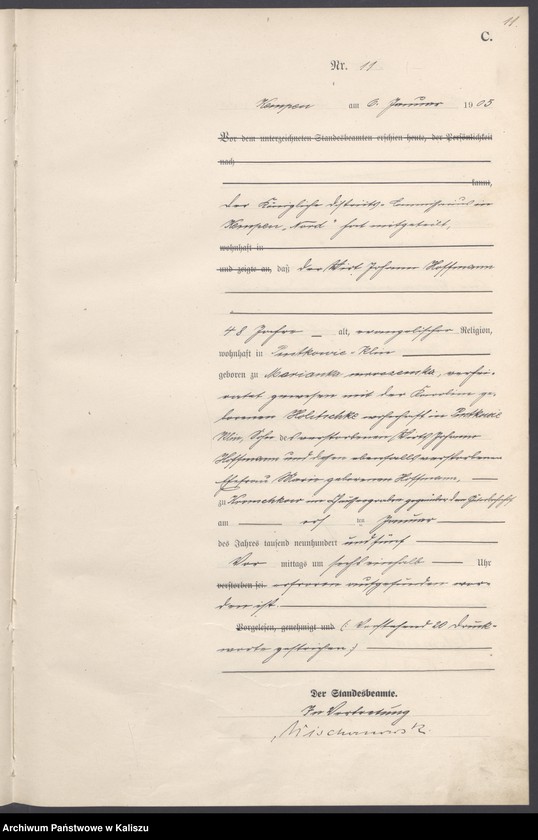 11
C.
Nr. 11
Kempen am 6. Januar 1905
Vor dem unterzeichneten Standesbeamten erschien heute, der Persönlichkeit
nach
kannt,
Der Königliche Distrikts-Kommissarius in
Kempen "Nord" hat mitgeteilt,
wohnhaft in
und zeigte an, daß der Wirt Johann Hoffmann
48 Jahre alt, evangelischer Religion,
wohnhaft in
geboren zu Marianka mroczenska, verhei-
ratet gewesen mit der Karoline ge-
borenen wohnhaft in
Sohn des verstorbenen Wirts Johann
Hoffmann und dessen ebenfalls verstorbenen
Ehefrau Marie geborenen Hoffmann,
zu im
am ersten Januar
des Jahres tausend neunhundert und fünf
Vor mittags um sechs einhalb Uhr
verstorben sei. erfroren aufgefunden wor-
den ist
Vorgelesen, genehmigt und (Vorstehend 20 Druck-
worte gestrichen.)
Der Standesbeamte.
In Vertretung
Archiwum Państwowe w Kaliszu